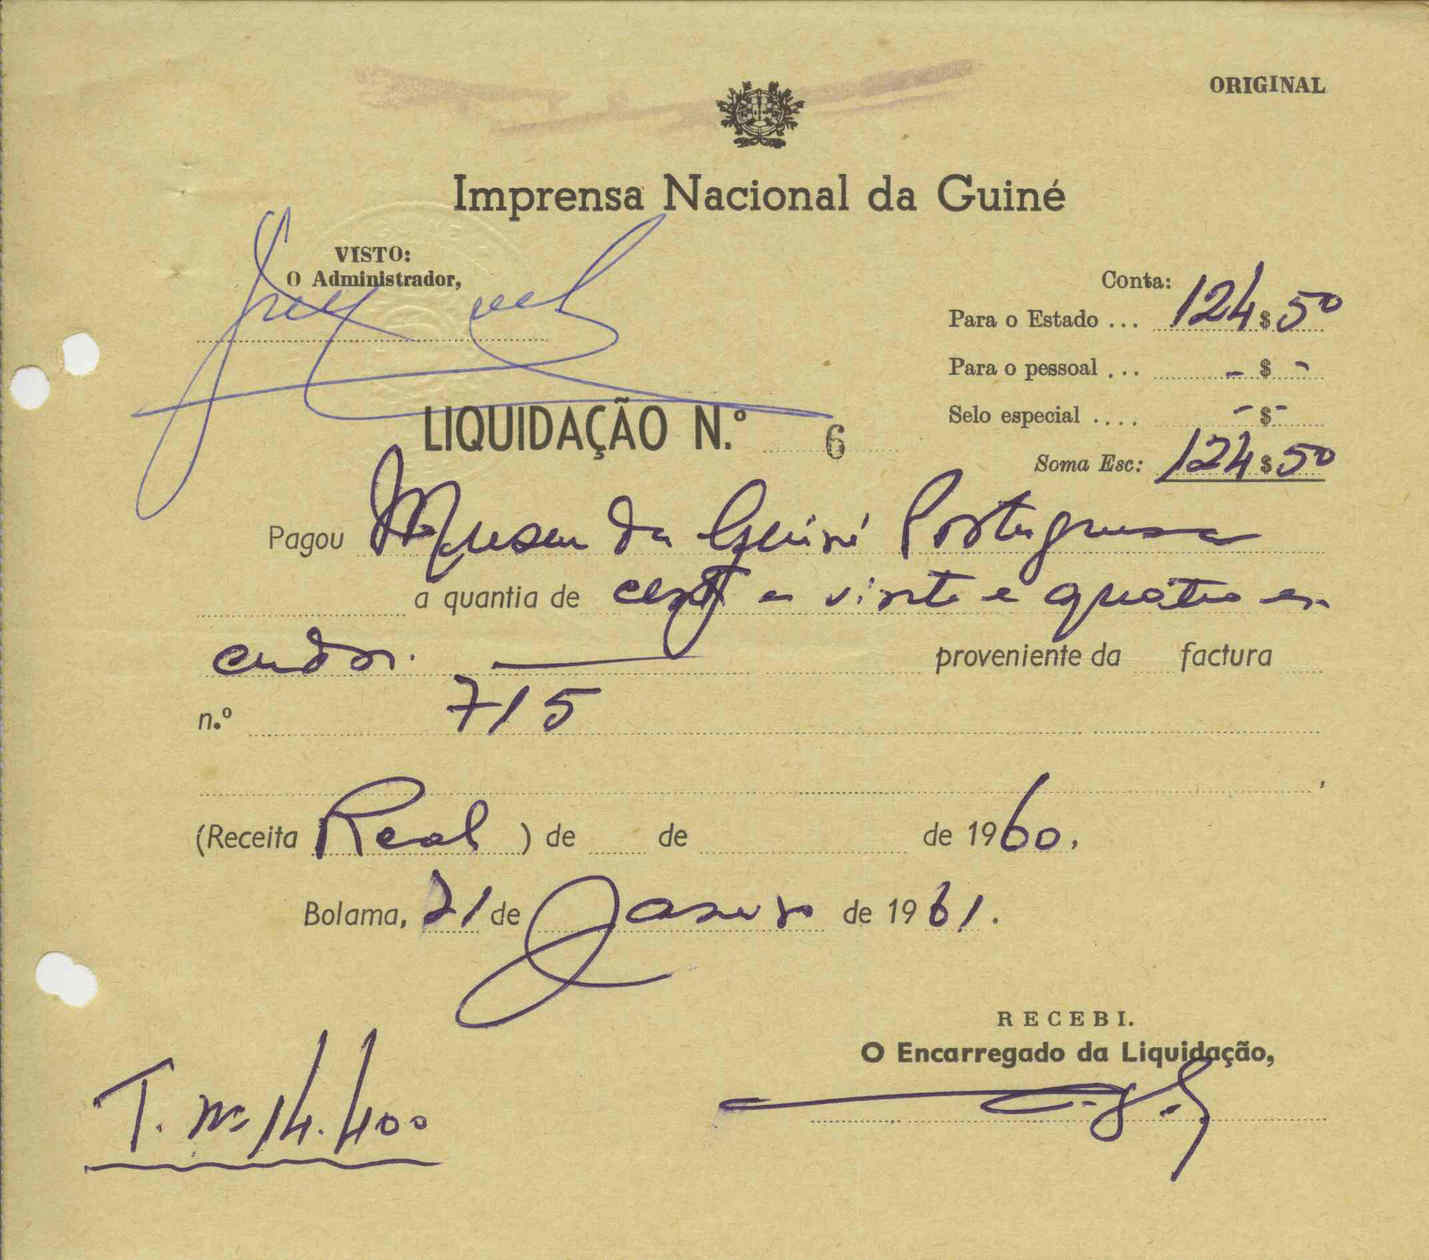 ORIGINAL
Imprensa Nacional da Guiné
VISTO:
O Administrador,
Conta:
Para o Estado ... 124$50
Para o pessoal ... - $ -
Selo especial .... - $ -
Soma Esc: 124$50
LIQUIDAÇÃO N.º 6
Pagou Museu da Guiné Portuguesa
a quantia de cento e vinte e quatro es-
cudos. proveniente da factura
n.º 715
,
(Receita Real ) de de de 1960.
Bolama, 21 de Janeiro de 1961.
RECEBI.
O Encarregado da Liquidação,
T. nº 14.400